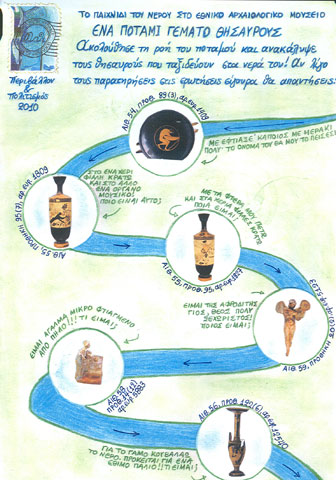 ΤΟ ΠΑΙΧΝΙΔΙ ΤΟΥ ΝΕΡΟΥ ΣΤΟ ΕΘΝΙΚΟ ΑΡΧΑΙΟΛΟΓΙΚΟ ΜΟΥΣΕΙΟ
ΕΝΑ ΠΟΤΑΜΙ ΓΕΜΑΤΟ ΘΗΣΑΥΡΟΥΣ
Ακολούθησε τη ροή του ποταμού και ανακάλυψε
τους θησαυρούς που ταξιδεύουν στα νερά του! Αν λίγο
τους παρατηρήσεις στις ερωτήσεις σίγουρα θα απαντήσεις!
Περιβάλλον
& Πολιτισμός
2010
ΑΙΘ. 54, ΠΡΟΘ. 89(3), αρ.ευρ. 1409
ΜΕ ΕΦΤΙΑΞΕ ΚΑΠΟΙΟΣ ΜΕ ΜΕΡΑΚΙ
ΠΟΛΥ ΤΟ ΟΝΟΜΑ ΤΟΥ ΘΑ ΜΟΥ ΠΕΙΣ ΕΣΥ
ΣΤΟ ΕΝΑ ΧΕΡΙ
ΦΙΑΛΗ ΚΡΑΤΩ
ΚΑΙ ΣΤΟ ΑΛΛΟ
ΕΝΑ ΟΡΓΑΝΟ
ΜΟΥΣΙΚΟ!
ΠΟΙΟ ΕΙΝΑΙ ΑΥΤΟ;
ΑΙΘ. 55, ΠΡΟΘΗΚΗ 95(7), αρ.ευρ. 1809
ΜΕ ΤΑ ΦΤΕΡΑ ΜΟΥ ΠΕΤΩ
ΚΑΙ ΣΤΑ ΧΕΡΙΑ ΦΙΑΛΕΣ ΚΡΑΤΩ
ΠΟΙΑ ΕΙΜΑΙ;
ΑΙΘ. 55, ΠΡΟΘ. 95, αρ.ευρ.
ΕΙΜΑΙ ΤΗΣ ΑΦΡΟΔΙΤΗΣ
ΓΙΟΣ, ΘΕΟΣ ΠΟΛΥ
ΞΕΧΩΡΙΣΤΟΣ!
ΠΟΙΟΣ ΕΙΜΑΙ;
ΑΙΘ. 59, ΠΡΟΘΗΚΗ
ΕΙΜΑΙ ΑΓΑΛΜΑ ΜΙΚΡΟ ΦΤΙΑΓΜΕΝΟ
ΑΠΟ ΠΗΛΟ!!! ΤΙ ΕΙΜΑΙ;
ΑΙΘ. 58
αρ.ευρ.
ΑΙΘ. 56, ΠΡΟΘ. 120(6), αρ.ευρ. 12540
ΓΙΑ ΤΟ ΓΑΜΟ ΚΟΥΒΑΛΑΩ
ΤΟ ΝΕΡΟ. ΠΡΟΚΕΙΤΑΙ ΓΙΑ ΕΝΑ
ΕΘΙΜΟ ΠΑΛΙΟ!!ΤΙ ΕΙΜΑΙ;